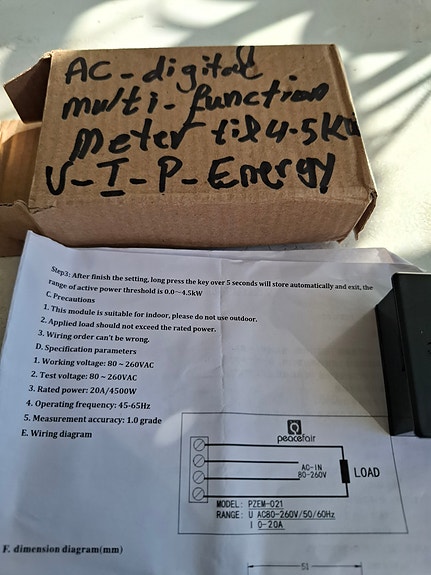 AC-digital
multi-function
Meter til 4.5kw
V-I-P-Energy
Step3: After finish the setting, long press the key over 5 seconds will store automatically and exit, the
range of active power threshold is 0.0~4.5kW
C. Precautions
1. This module is suitable for indoor, please do not use outdoor.
2. Applied load should not exceed the rated power.
3. Wiring order can't be wrong.
D. Specification parameters
1. Working voltage: 80 ~ 260VAC
2. Test voltage: 80 ~ 260VAC
3. Rated power: 20A/4500W
4. Operating frequency: 45-65Hz
5. Measurement accuracy: 1.0 grade
E. Wiring diagram
peacefair
AC-IN
80-260V
LOAD
MODEL: PZEM-021
RANGE: U AC80-260V/50/60Hz
I 0-20A
F. dimension diagram(mm)
51